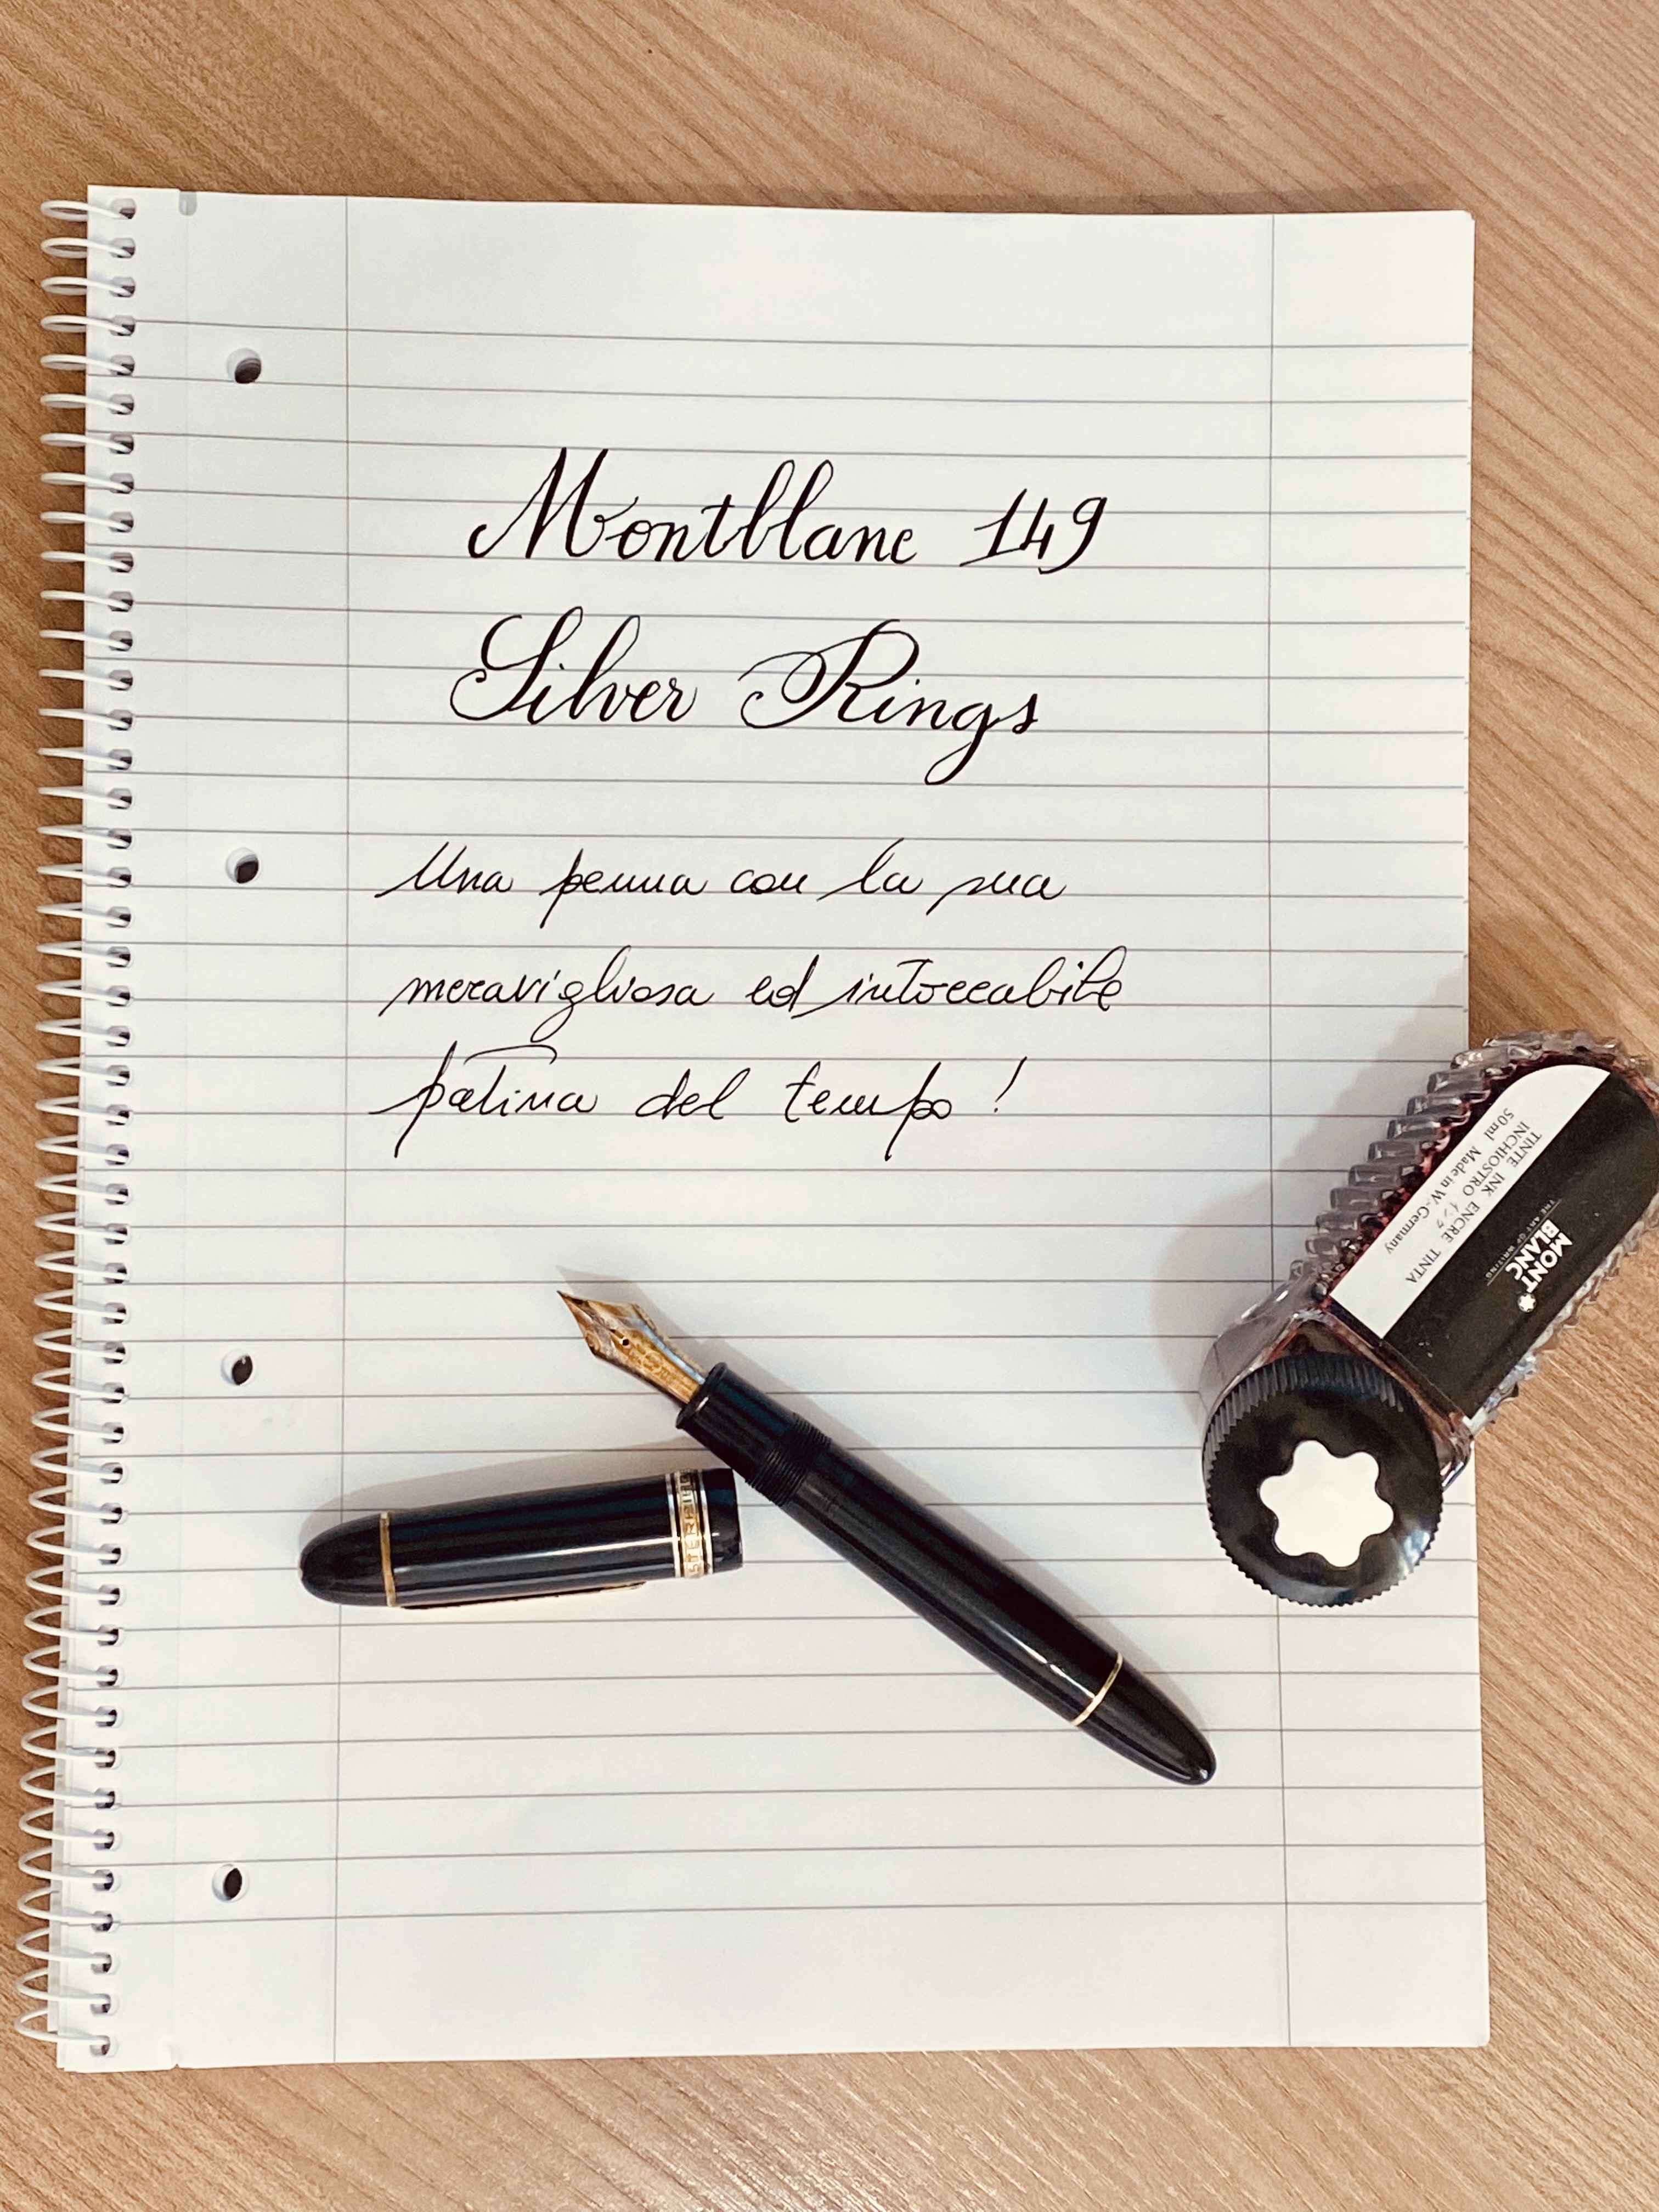 Montblanc 149
Silver Rings
Una penna con la sua
meravigliosa ed intoccabile
patina del tempo !
TINTE INK ENCRE TINTA
INCHIOSTRO インク
50 ml Made in W.-Germany
MONT
BLANC
THE ART OF WRITING